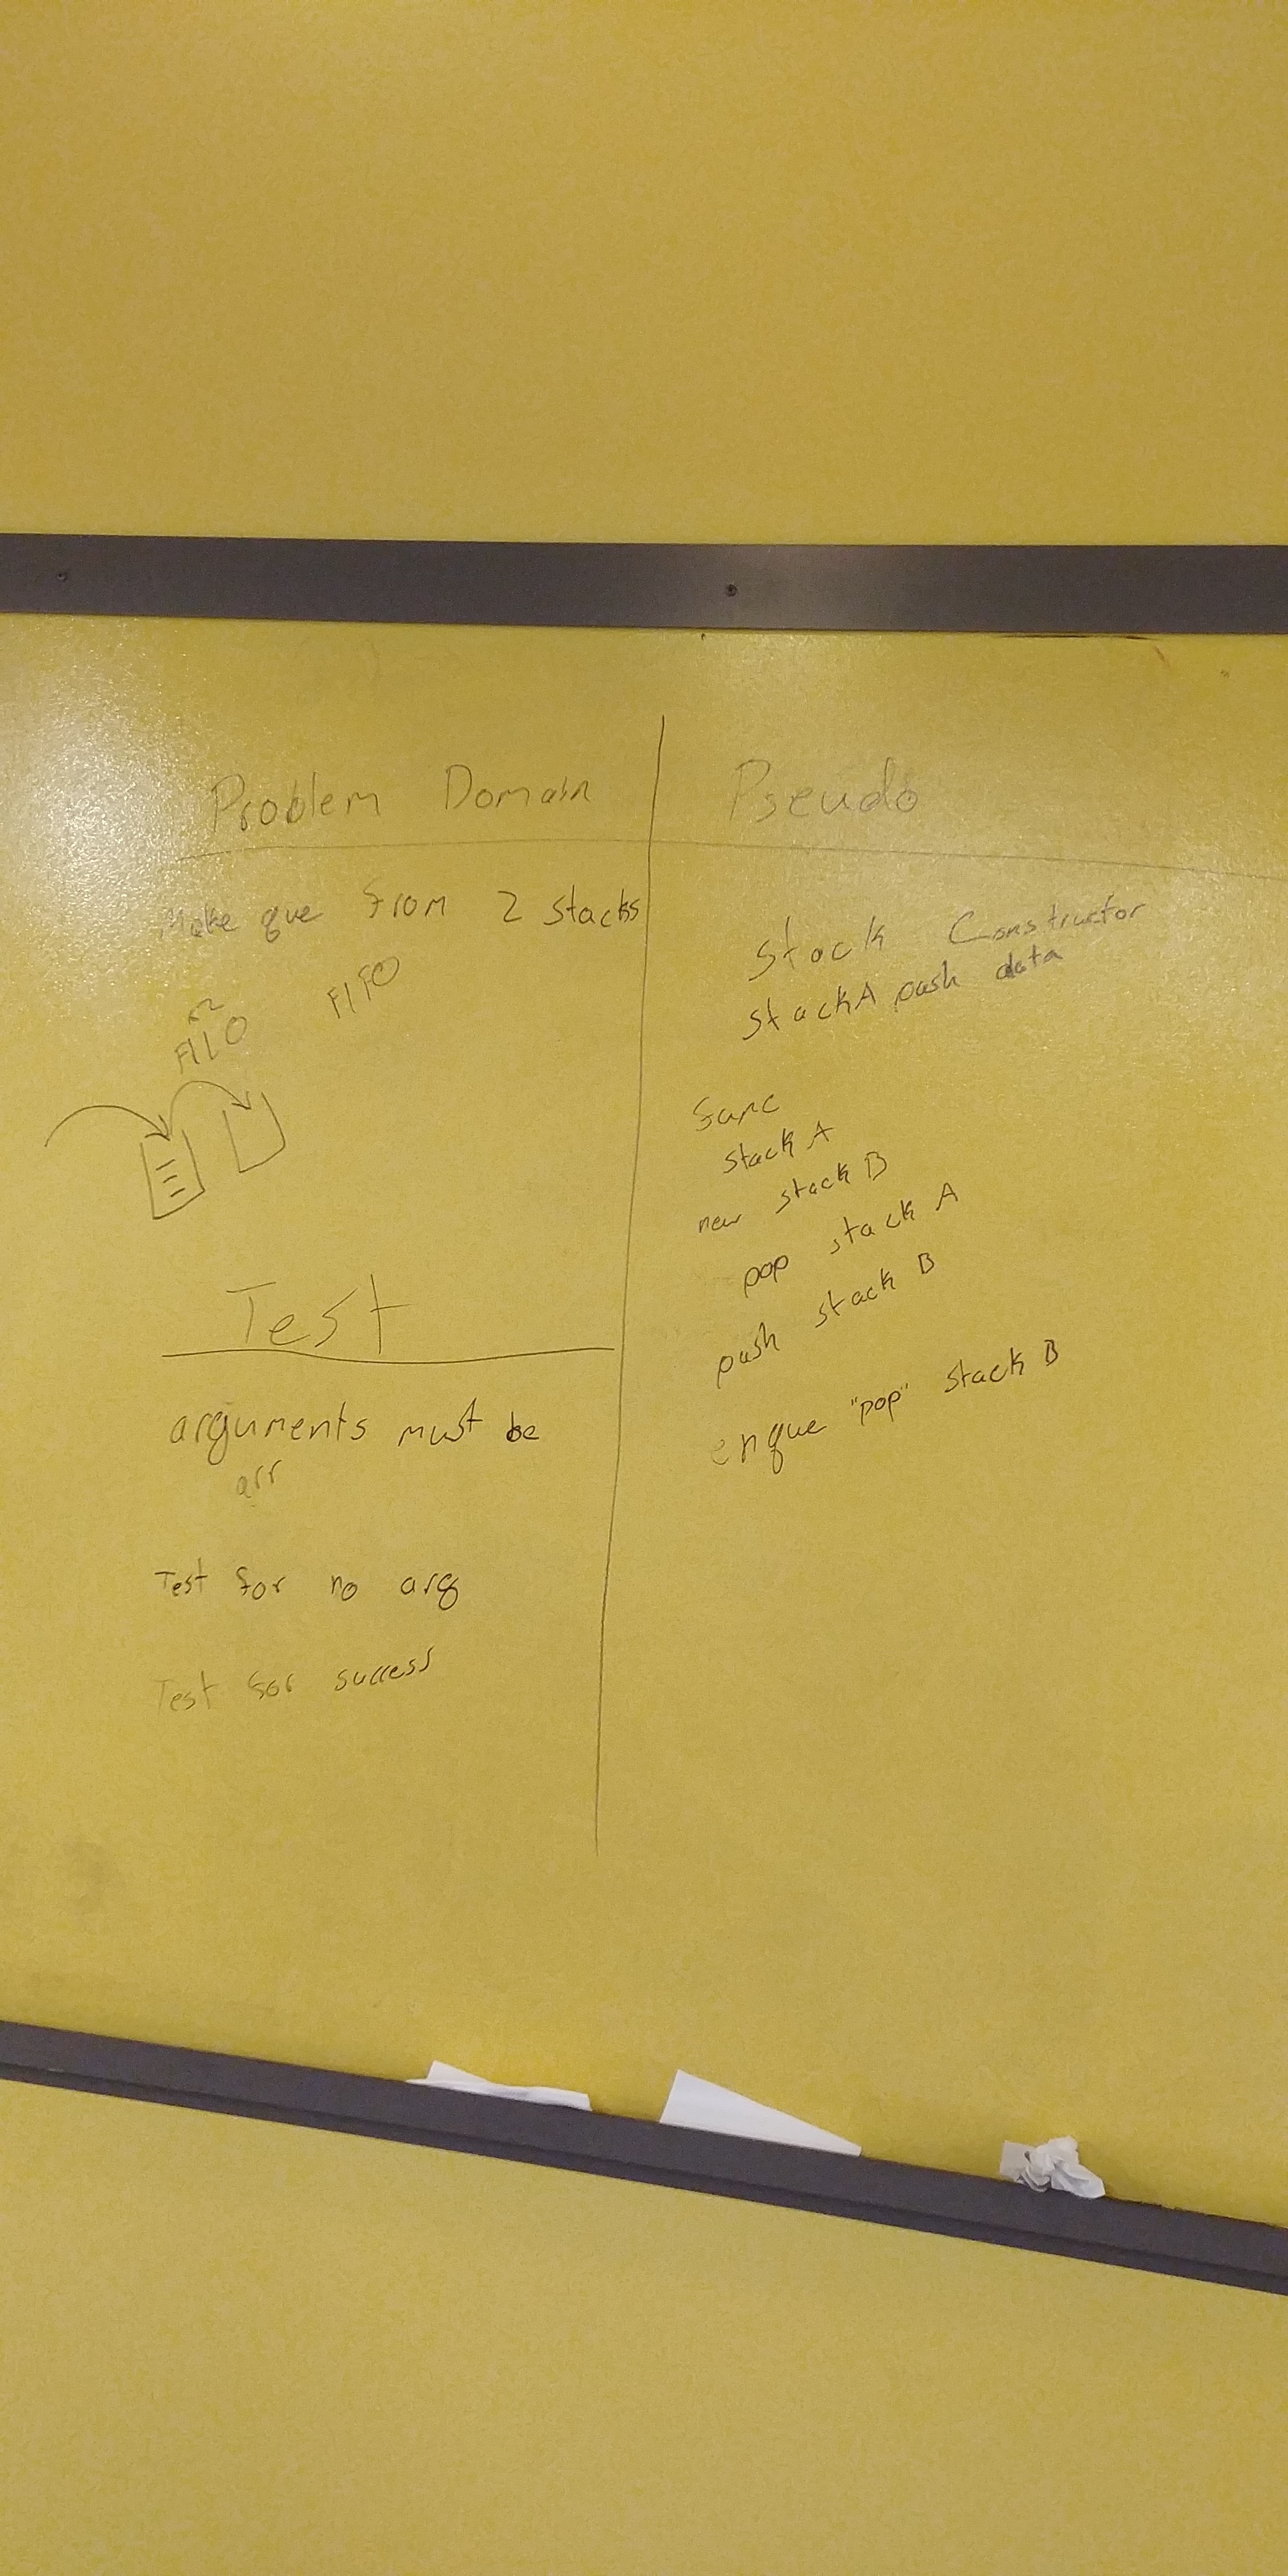 Problem Domain
Make que from 2 stacks
FILO
FIFO
Test
arguments must be
arr
Test for no arg
Test for success
Pseudo
Stack Constructor
StackA push data
func
stack A
new stack B
pop stack A
push stack B
enque "pop" stack B